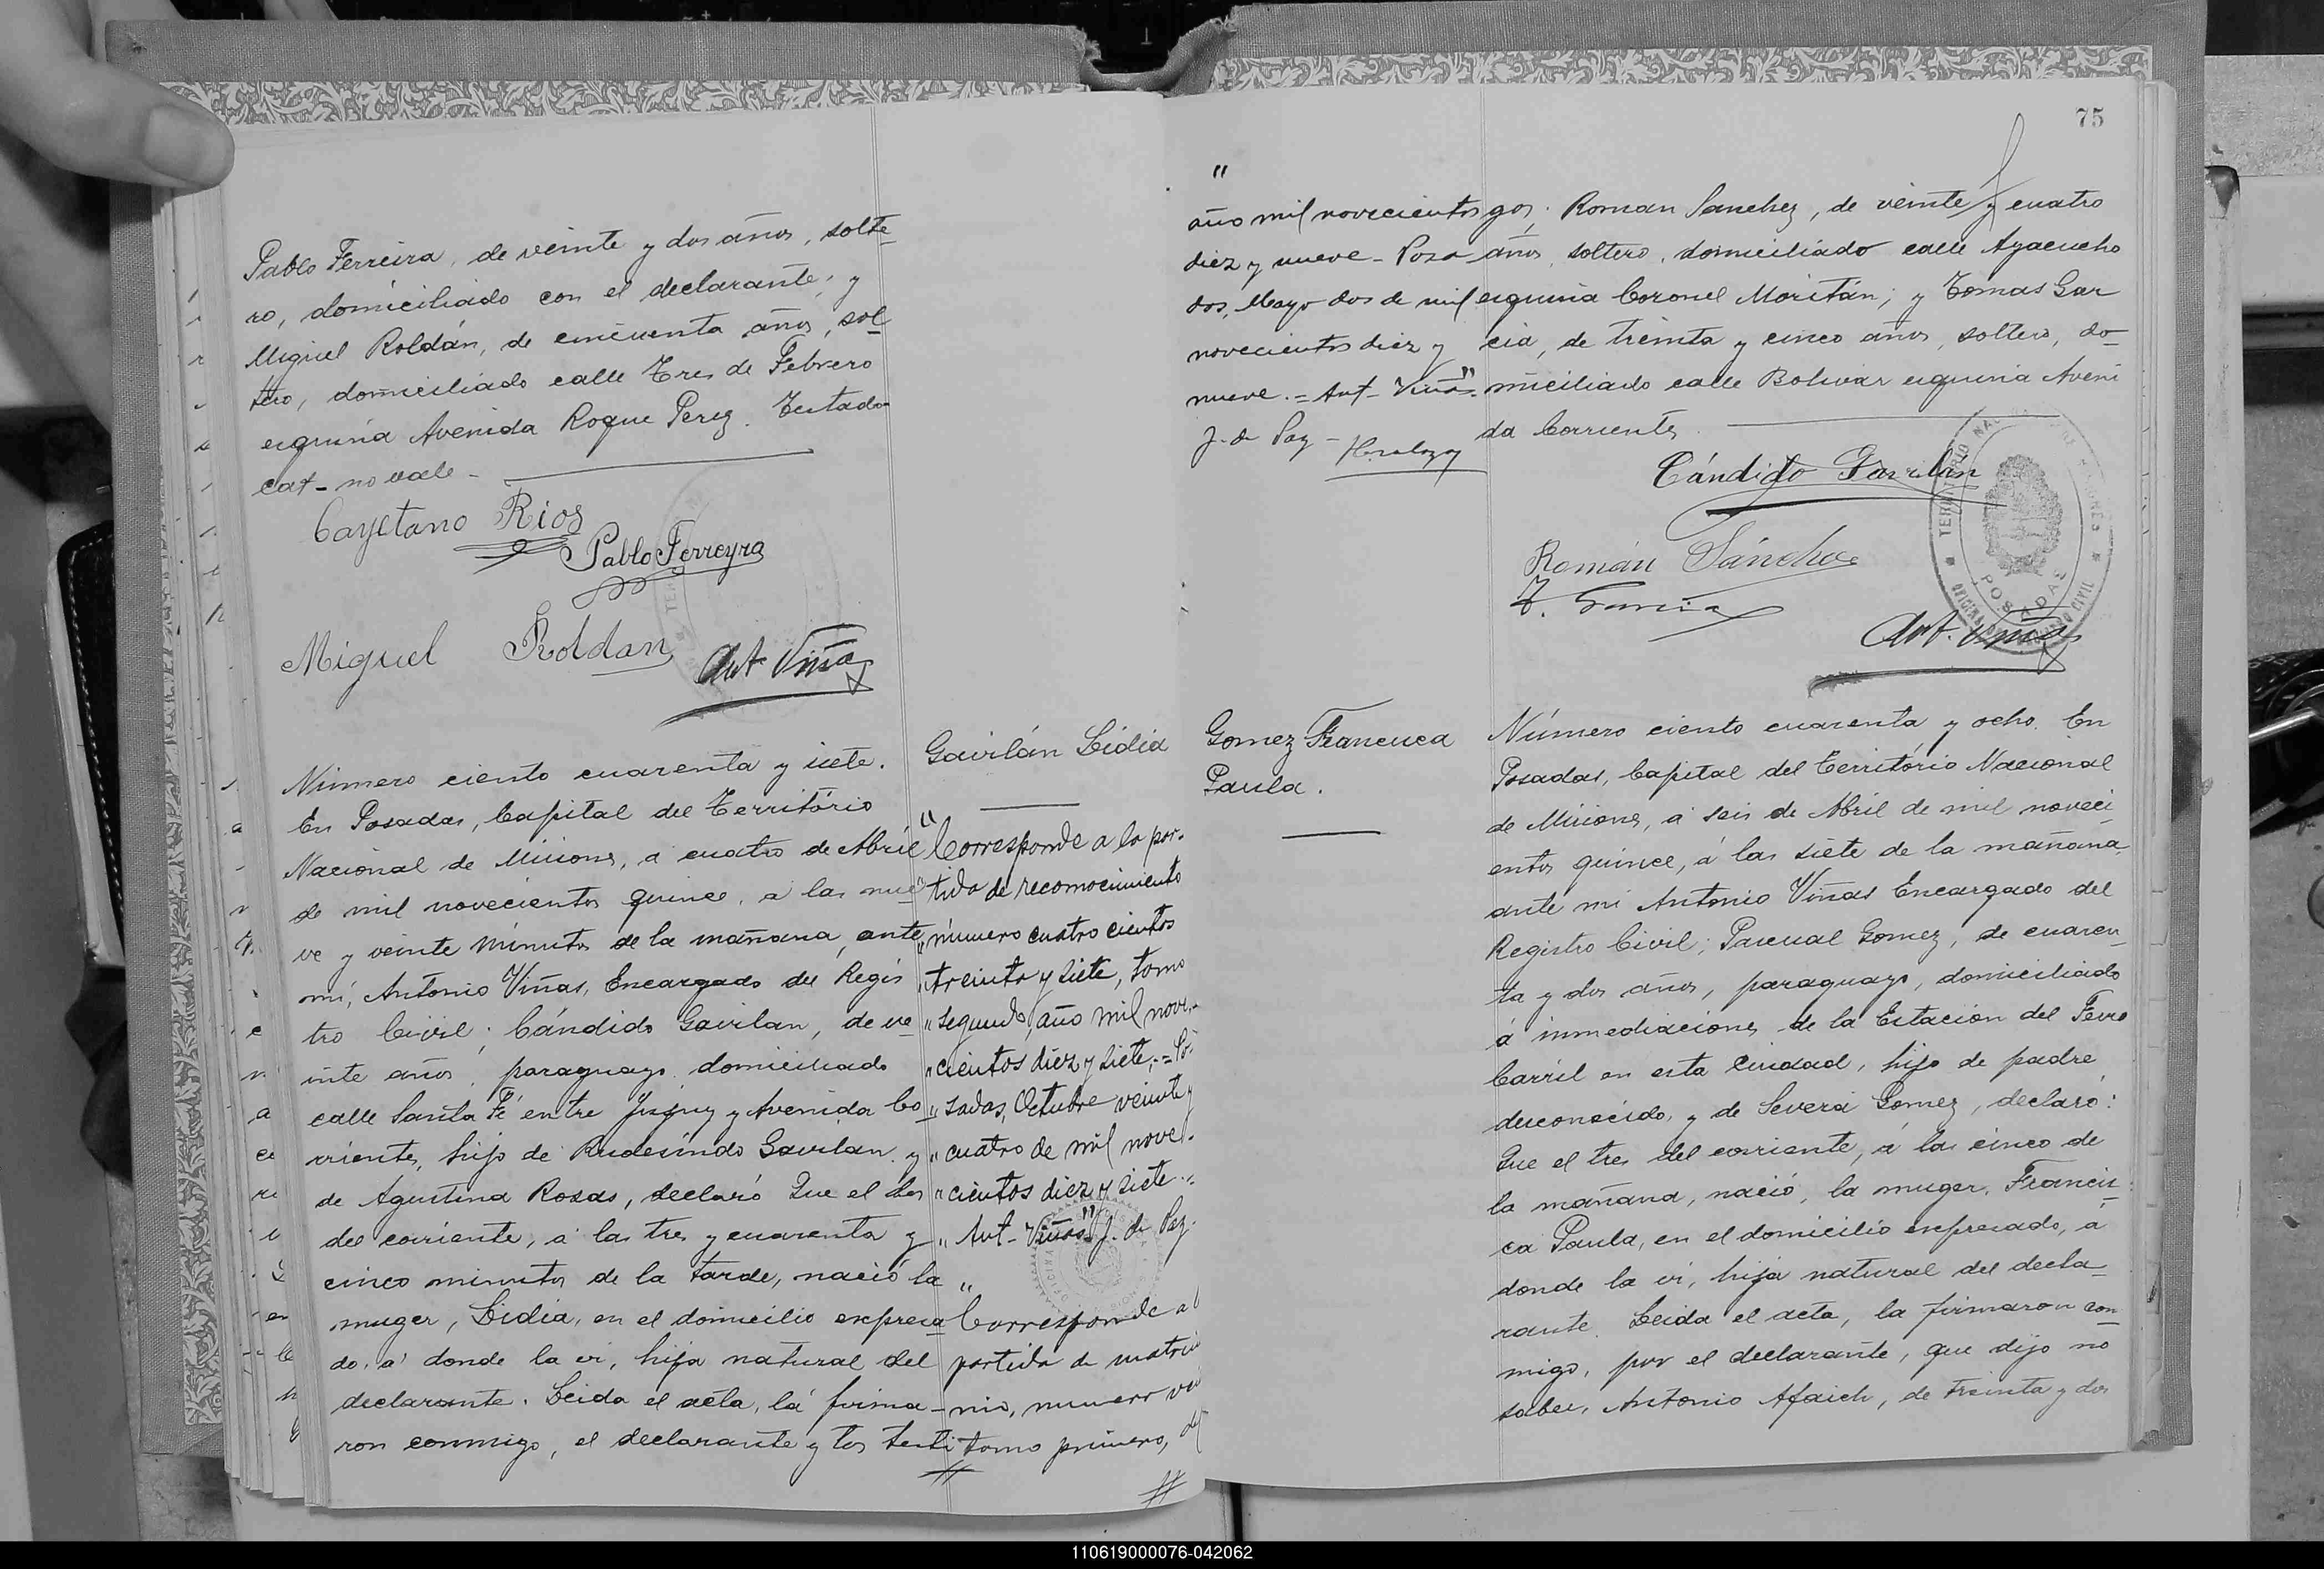 Pablo Ferreira, de veinte y dos años, solte-
ro, domiciliado con el declarante; y
Miguel Roldán, de cincuenta años, sol-
tero, domiciliado calle Tres de Febrero
esquina Avenida Roque Perez. Testado-
cat - no vale -
Cayetano Rios
Pablo Ferreyra
Miguel Roldan
Ant. Viñas
Número ciento cuarenta y siete.
En Posadas, Capital del Território
Nacional de Misiones, a cuatro de Abril
de mil novecientos quince, a las nue-
ve y veinte minutos de la mañana, ante
mí, Antonio Viñas, Encargado del Regis
tro Civil; Cándido Gavilan, de ve
inte años, paraguayo, domiciliado
calle Santa Fé entre Jujuy y Avenida Co-
rrientes, hijo de Rudesindo Gavilan y
de Agustina Rosas, declaró Que el dos
del corriente, a las tres y cuarenta y
cinco minutos de la tarde, nació la
muger, Lidia, en el domicilio expresa-
do, a' donde la ví, hija natural del
declarante. Leida el acta, la firma-
ron conmigo, el declarante y los testi
Gavilán Lidia
" Corresponde a la par-
" tida de reconocimiento
" número cuatro cientos
" treinta y siete, tomo
" segundo, año mil nove-
" cientos diez y siete.- = Po-
" sadas, Octubre veinte y
" cuatro de mil nove-
" cientos diez y siete.=
" Ant - Viñas" J. de Paz.
"
Corresponde a l
partida de matrim
nio, numero
tomo primero, del
75
"
año mil novecientos
diez y nueve - Posa
dos, Mayo dos de mil
novecientos diez y
nueve. = Ant - Viñas".
J. de Paz -
gos: Roman Sanchez, de veinte y cuatro
años, soltero, domiciliado calle Ayacucho
esquina Coronel Moritán; y Tomas Gar
cia, de treinta y cinco años, soltero, do-
miciliado calle Bolivar esquina Aveni
da Corrientes.
Cándido Gavilán
Román Sánchez
T. Garcia
Ant. Viñas
TERRITORIO NACIONAL DE MISIONES
POSADAS
OFICINA DEL REGISTRO CIVIL
Gomez Francisca
Paula.
Número ciento cuarenta y ocho. En
Posadas, Capital del Território Nacional
de Misiones, a seis de Abril de mil noveci
entos quince, á las siete de la mañana,
ante mi Antonio Viñas Encargado del
Registro Civil; Pascual Gomez, de cuaren-
ta y dos años, paraguayo, domiciliado
á inmediaciones de la Estación del Ferro
Carríl en esta Ciudad, hijo de padre
desconocido, y de Severa Gomez, declaró:
Que el tres del corriente, á las cinco de
la mañana, nació, la muger, Francis-
ca Paula, en el domicilio expresado, á
donde la ví, hija natural del decla-
rante. Leida el acta, la firmaron con
migo, por el declarante, que dijo no
saber, Antonio Afaich, de treinta y dos
110619000076-042062